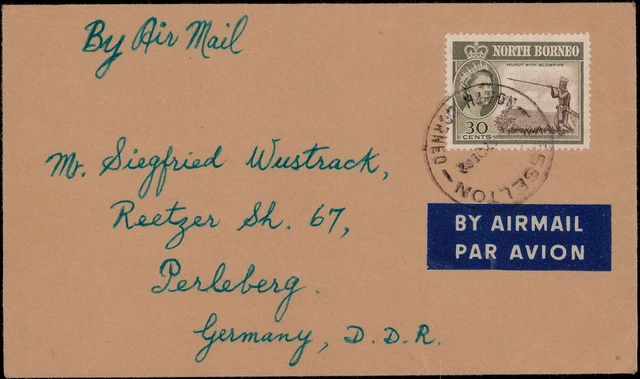 By Air Mail
NORTH BORNEO
MURUT WITH BLOWPIPE
30
CENTS
JESSELTON
BORNEO
Mr. Siegfried Wustrack,
Reetzer Sh. 67,
Perleberg.
Germany, D.D.R.
BY AIRMAIL
PAR AVION